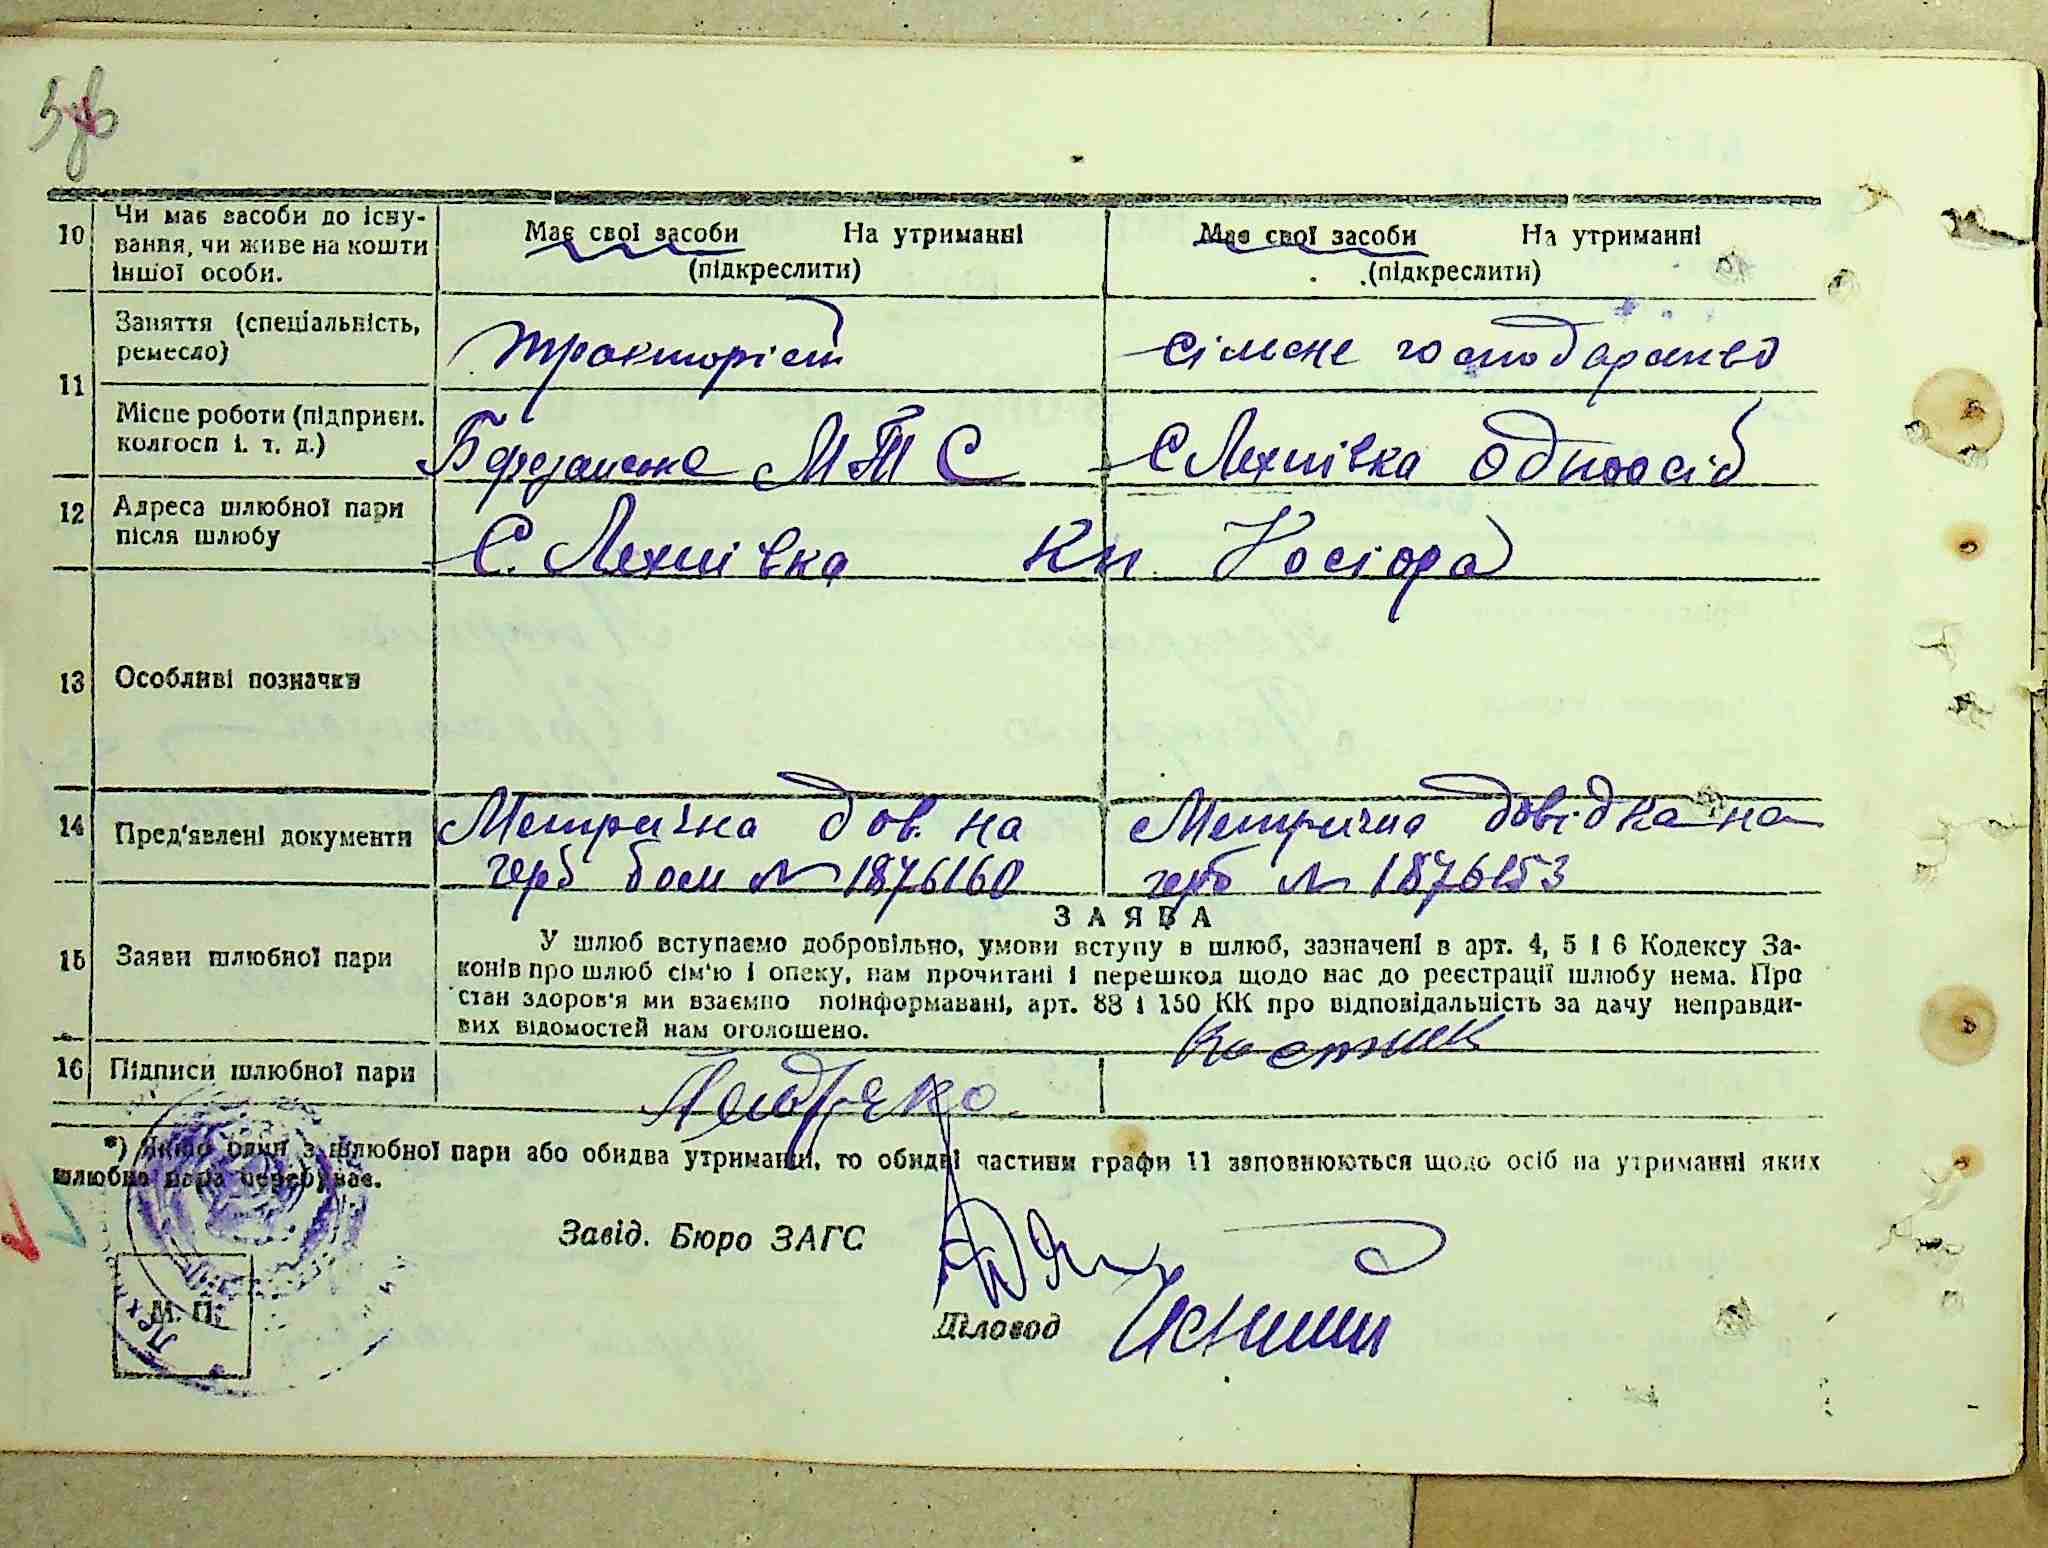 10 Чи має засоби до існу-
вання, чи живе на кошти
іншої особи.
Має свої засоби На утриманні
(підкреслити)
Має свої засоби На утриманні
(підкреслити)
11
Заняття (спеціальність,
ремесло)
Тракторіст
сільске господарство
Місце роботи (підприєм.
колгосп і. т. д.)
Березанське МТС
С Лехнівка одноосіб
12 Адреса шлюбної пари
після шлюбу
С. Лехнівка кн Косіора
13 Особливі позначки
14 Пред'явлені документи
Метрична дов. на
герб бом № 1876160
Метрична довідка на
герб № 1876153
15 Заяви шлюбної пари
ЗАЯВА
У шлюб вступаємо добровільно, умови вступу в шлюб, зазначені в арт. 4, 5 і 6 Кодексу За-
конів про шлюб сім'ю і опеку, нам прочитані і перешкод щодо нас до реєстрації шлюбу нема. Про
стан здоров'я ми взаємно поінформавані, арт. 88 і 150 КК про відповідальність за дачу неправди-
вих відомостей нам оголошено.
16 Підписи шлюбної пари
*) Якщо один з шлюбної пари або обидва утриманці, то обидві частини графи 11 заповнюються щодо осіб на утриманні яких
шлюбна пара перебуває.
Завід. Бюро ЗАГС
Діловод
М. П.